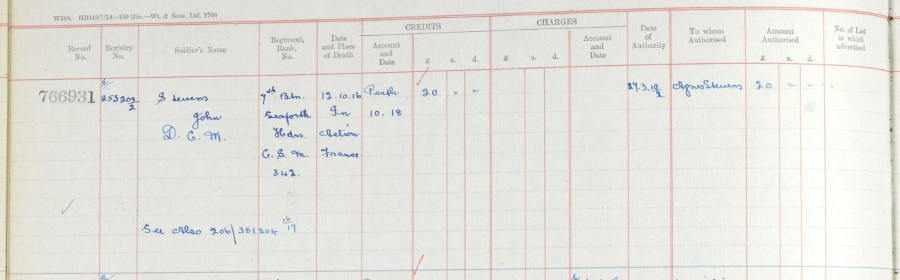 W5498. HB249/7/18—100 Bks.—Wt. & Sons, Ltd. 1708
CREDITS CHARGES
Record No. Registry No. Soldier's Name Regiment, Rank, No. Date and Place of Death Account and Date £ s. d. £ s. d. Account and Date Date of Authority To whom Authorised Amount Authorised £ s. d. No. of List in which advertised
766931 253203/2 Stevens 7th Btn. 12.10.16 Perth 20 - - 27.3.19 Agnes Stevens 20 - -
John Seaforth In 10.18
D.C.M. Hdrs Action
C.S.M. France
342.
See Also 206/381204 16/17